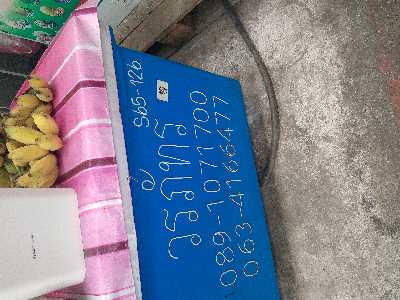 S65-126
วรภัทร
089-1071700
063-4166477